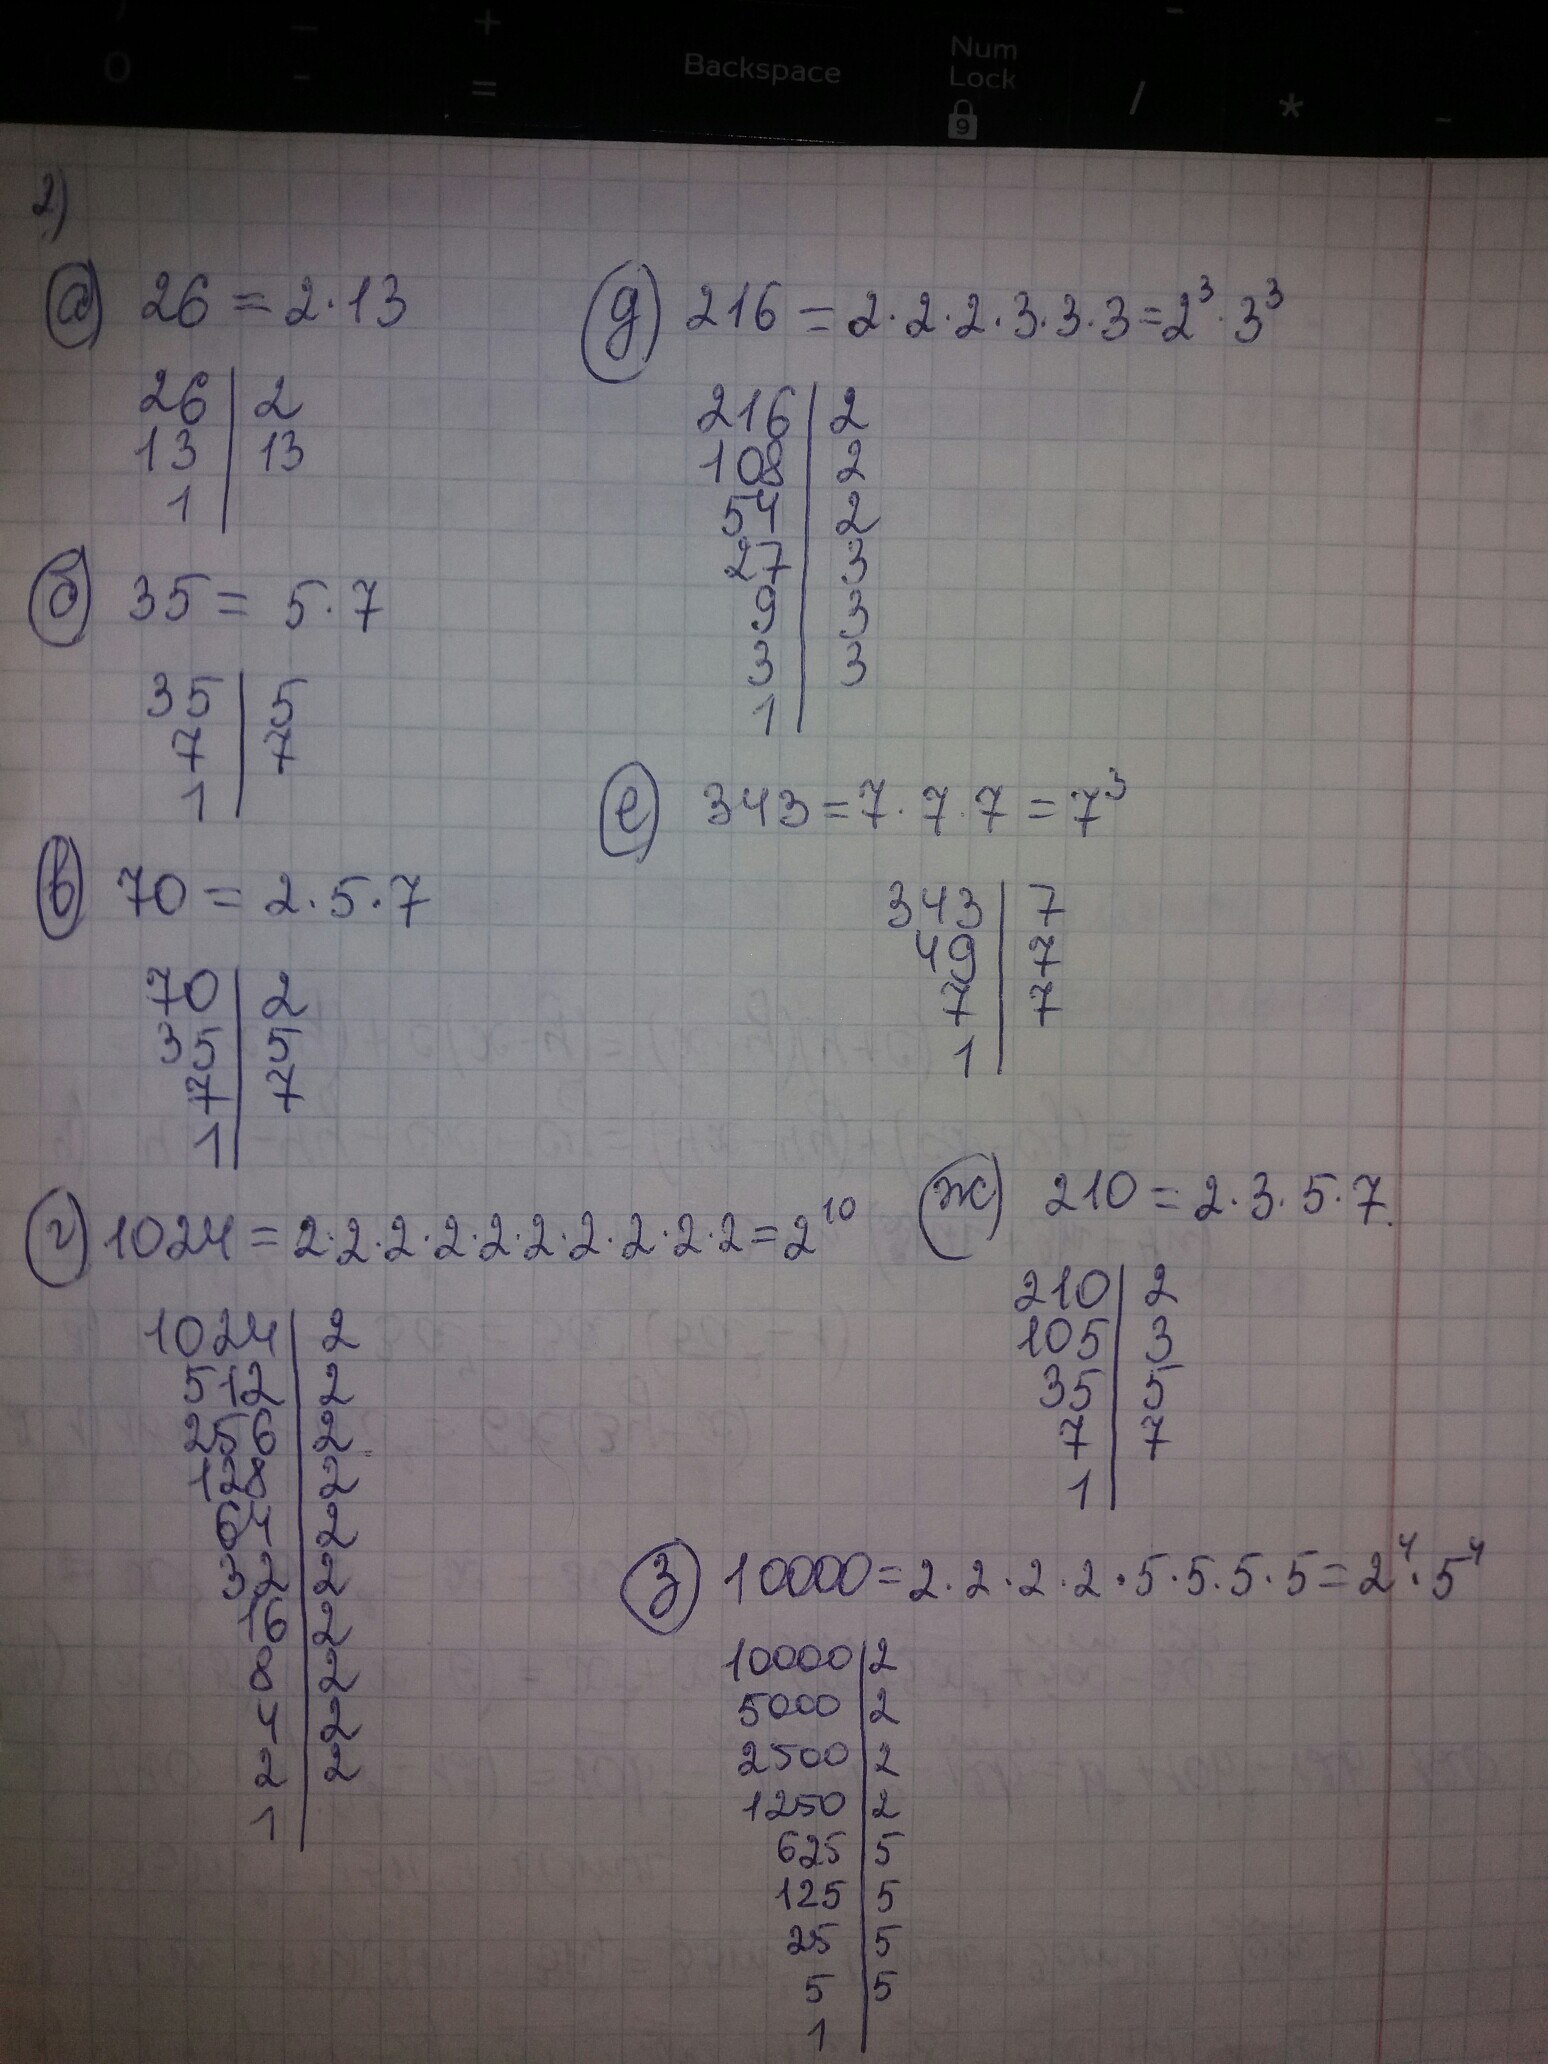 Backspace
Num
Lock
9
0
-
+
=
/
*
-
2)
а) 26 = 2·13
26 | 2
13 | 13
1
б) 35 = 5·7
35 | 5
7 | 7
1
в) 70 = 2·5·7
70 | 2
35 | 5
7 | 7
1
г) 1024 = 2·2·2·2·2·2·2·2·2·2 = 2¹⁰
1024 | 2
512 | 2
256 | 2
128 | 2
64 | 2
32 | 2
16 | 2
8 | 2
4 | 2
2 | 2
1
д) 216 = 2·2·2·3·3·3 = 2³·3³
216 | 2
108 | 2
54 | 2
27 | 3
9 | 3
3 | 3
1
е) 343 = 7·7·7 = 7³
343 | 7
49 | 7
7 | 7
1
ж) 210 = 2·3·5·7.
210 | 2
105 | 3
35 | 5
7 | 7
1
з) 10000 = 2·2·2·2·5·5·5·5 = 2⁴·5⁴
10000 | 2
5000 | 2
2500 | 2
1250 | 2
625 | 5
125 | 5
25 | 5
5 | 5
1